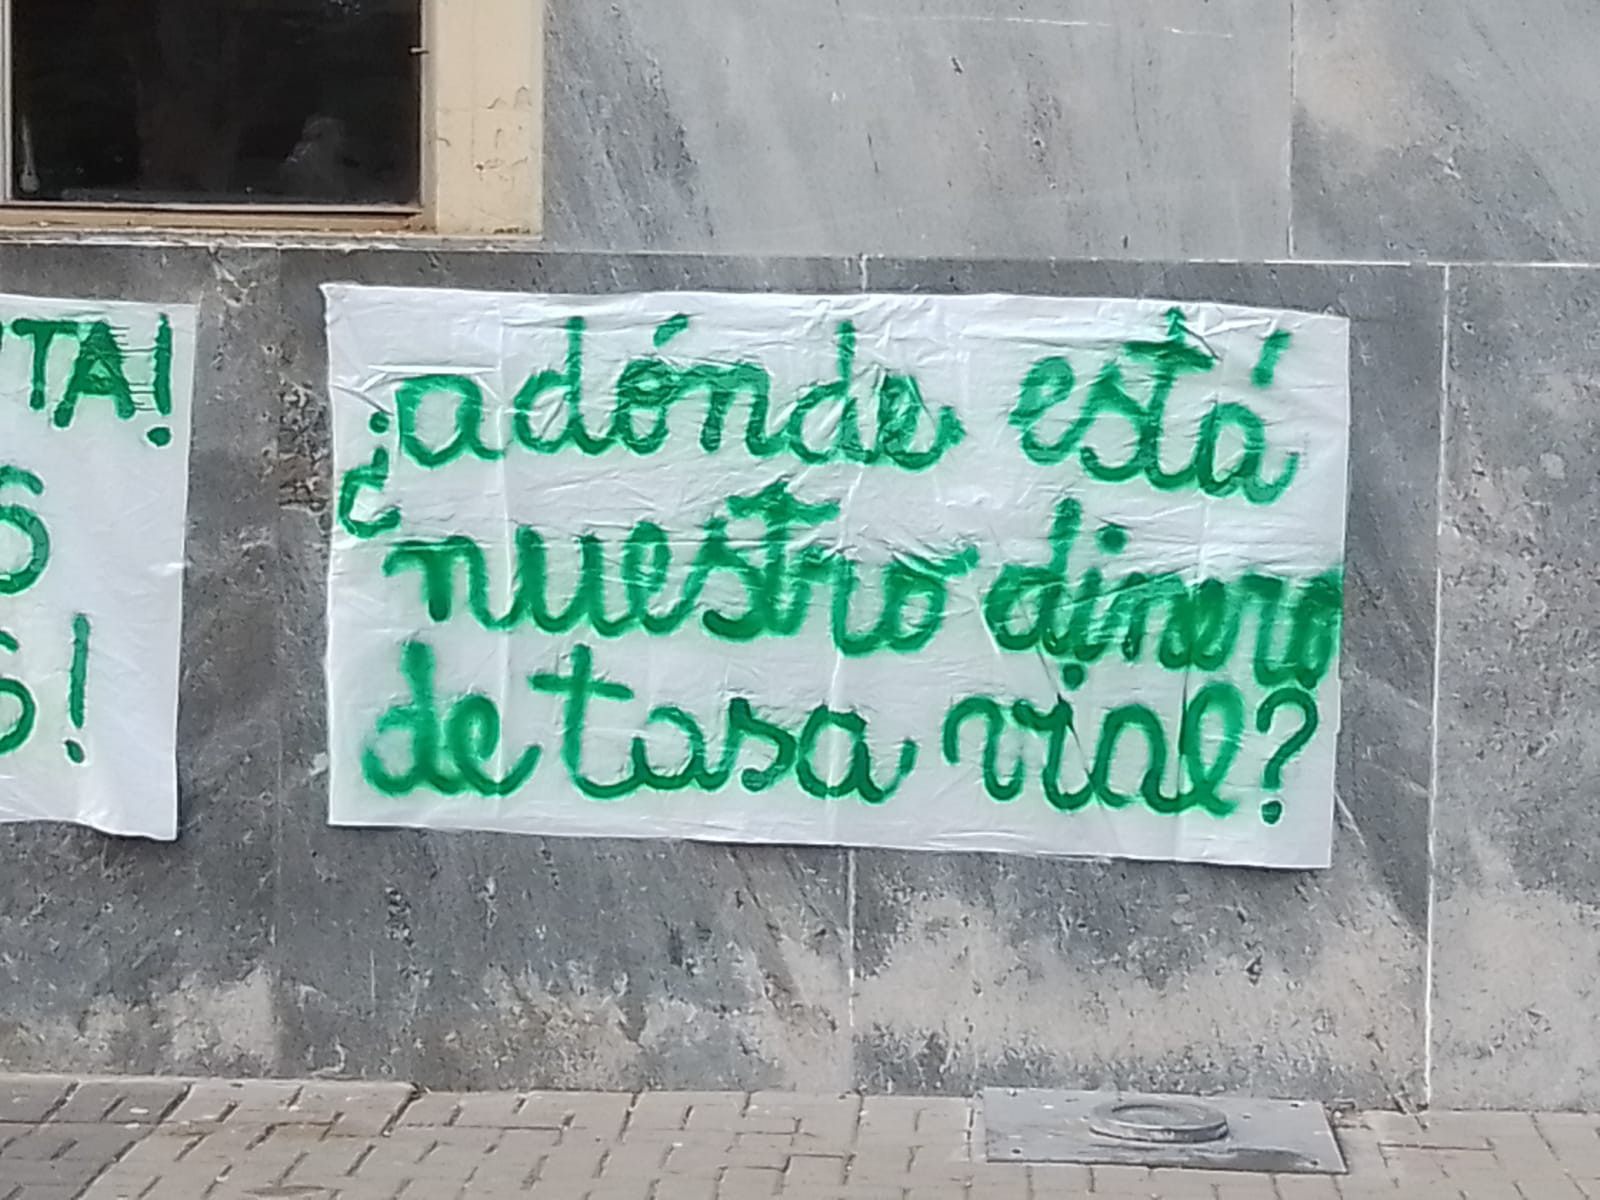 TA!
S
S!
¿adónde está
nuestro dinero
de tasa vial?